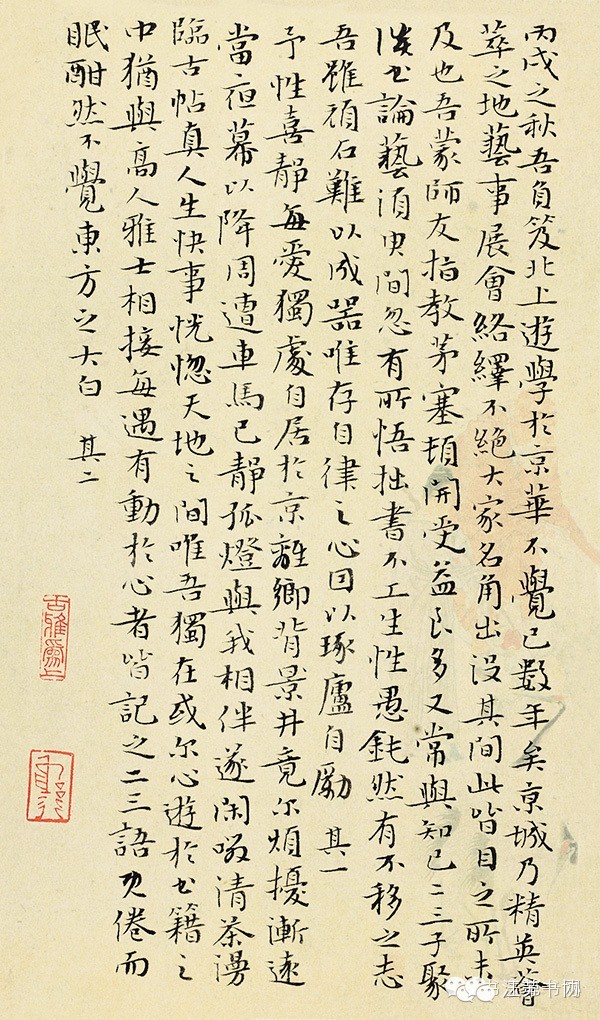 丙戌之秋吾負笈北上遊學於京華不覺已數年矣京城乃精英薈
萃之地藝事展會絡繹不絕大家名角出没其間此皆目之所未
及也吾蒙師友指教茅塞頓開受益良多又常與知己二三子聚
談書論藝須臾間忽有所悟拙書不工生性愚鈍然有不移之志
吾雖頑石難以成器唯存自律之心因以琢廬自勵 其一
予性喜靜每愛獨處自居於京離鄉背景井竟尔煩擾漸遠
當夜幕以降周遭車馬已靜孤燈與我相伴遂閑啜清茶漫
臨古帖真人生快事恍惚天地之間唯吾獨在或尔心遊於書籍之
中猶與高人雅士相接每遇有動於心者皆記之二三語更倦而
眠酣然不覺東方之大白 其二